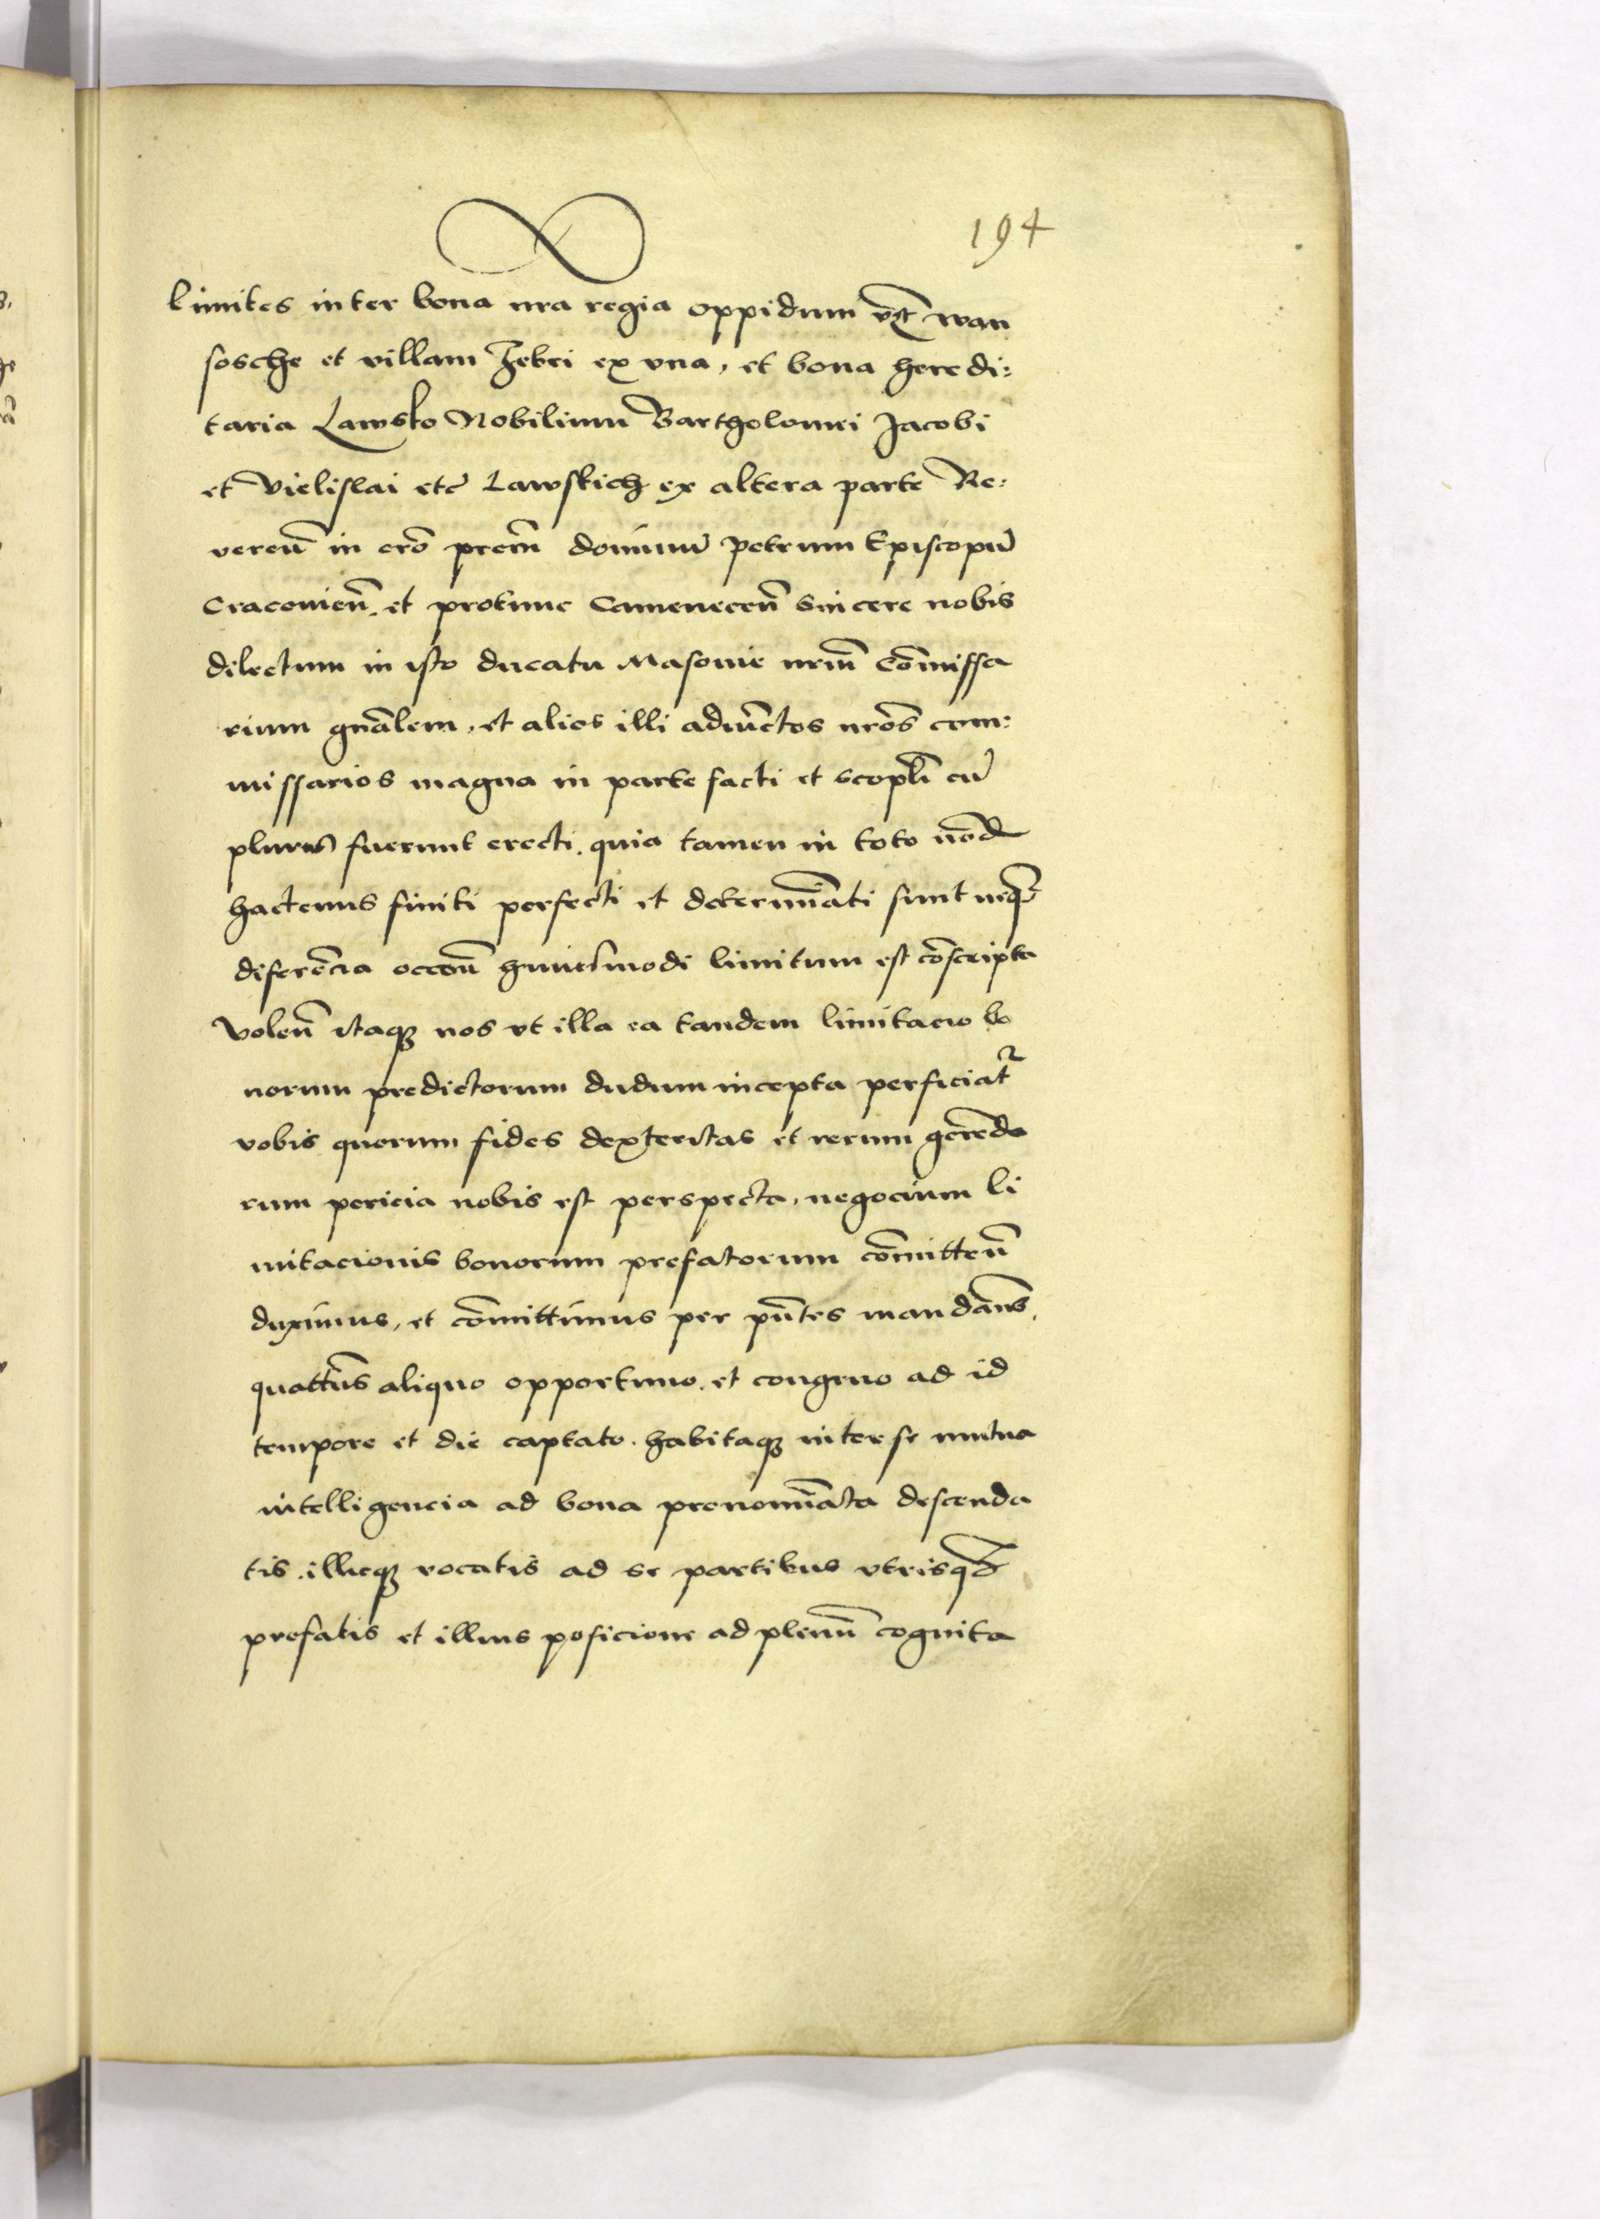 194
limites inter bona nra regia oppidum vcz wan
sosche et villam Jebri ex vna, et bona heredi:
taria Lawsko Nobilium Bartholomei Jacobi
et Vielislai etc Lawskich ex altera parte Re:
veren̄ in cro prem dominū Petrum Episcopū
Cracovien̄. et protunc Camenecen̄ sincere nobis
dilectum in isto ducatu Masovie nrm̄ Com̄issa
rium gnālem, et alios illi adiūctos nros̄ com:
missarios magna in parte facti et scopl̄i cū
plures fuerunt erecti. quia tamen in toto nōd
hactenus finiti perfecti et determinati sunt neq̄
diferēcia occōn̄ huiusmodi limitum est cōscripta
Volen̄ itaq nos vt illa ea tandem limitacio bo
norum predictorum dudum incepta perficiat
vobis quorum fides dexteritas et rerum gerēda
rum pericia nobis est perspecta, negocium li
mitacionis bonorum prefatorum com̄itten̄
duximus, et com̄ittimus per pn̄tes mandān̄s.
quattn̄s aliquo opportuno. et congruo ad id
tempore et die captato. habitaq inter se mutua
intelligencia ad bona prenomīata descenda
tis. illicq vocatis ad se partibus vtrisq
prefatis et illius posicione ad plenū cognita